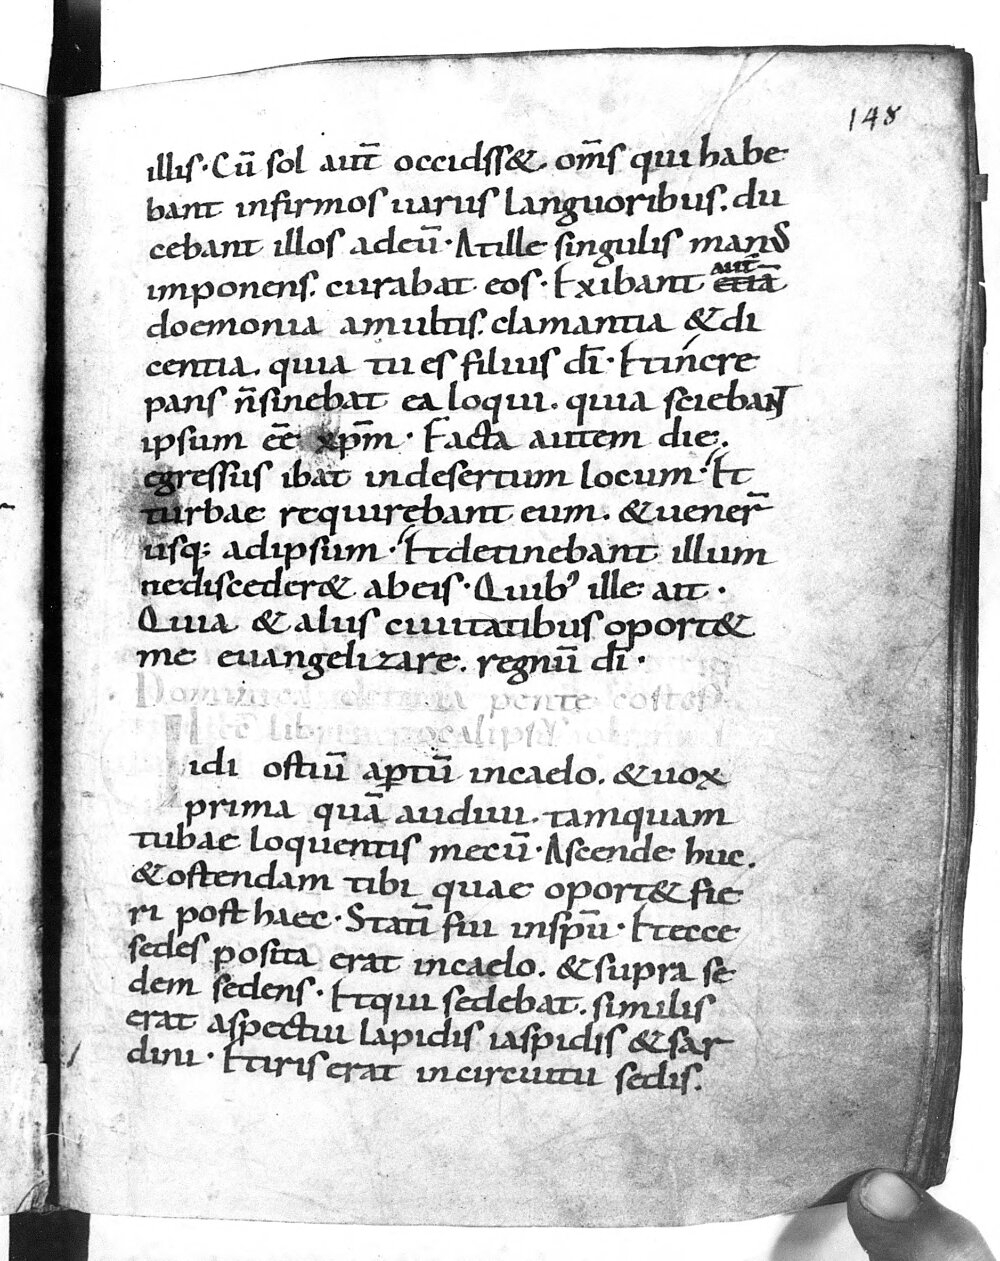 148
illis · Cū sol aut̄ occidss&. om̄s qui habe
bant infirmos uariis languoribus. du
cebant illos adeū · At ille singulis man᷒
imponens. curabat eos · Exibant aut̄ etiā
doemonia amultis. clamantia & di
centia. quia tu es filius dī · Et incre
pans n̄ sinebat ea loqui. quia sciebant
ipsum eē xp̄m · Facta autem die.
egressus ibat indesertum locum · Et
turbae requirebant eum. & uener̄
usq: adipsum · Et detinebant illum
nedisceder& abeis · Quib᾽ ille ait ·
Quia & aliis ciuitatibus oport&
me euangelizare. regnū dī ·
Dominica decima pente costes
Lec libri apocalipsis iohannis
idi ostiū aptū incaelo. & uox
prima quā audiui. tamquam
tubae loquentis mecū · Ascende huc.
& ostendam tibi quae oport& fie
ri post haec · Statī fui inspū · Et ecce
sedes posita erat incaelo. & supra se
dem sedens · Et qui sedebat. similis
erat aspectui lapidis iaspidis & sar
dini · Et iris erat incircuitu sedis.